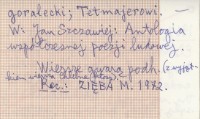 góralecki; Tetmajerowi.
W: Jan Szczawiej: Antologia
współczesnej poezji ludowej.
Wiersze gwarą podh. (z wyjąt-
kiem wiersza
Rec.: ZIĘBA M. 1972.